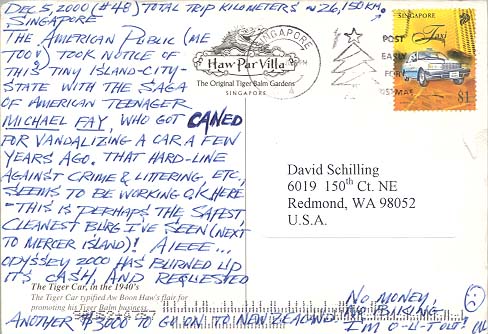 DEC 5, 2000 (#48) TOTAL TRIP KILOMETERS ~26,150 KM.
SINGAPORE
THE AMERICAN PUBLIC (ME
TOO?) TOOK NOTICE OF
THIS TINY ISLAND-CITY-
STATE WITH THE SAGA
OF AMERICAN TEENAGER
MICHAEL FAY, WHO GOT CANED
FOR VANDALIZING A CAR A FEW
YEARS AGO. THAT HARD-LINE
AGAINST CRIME & LITTERING, ETC.,
SEEMS TO BE WORKING OK HERE
- THIS IS PERHAPS THE SAFEST
CLEANEST BURG I'VE SEEN (NEXT
TO MERCER ISLAND)! AIEEE...
ODYSSEY 2000 HAS BURNED UP
ITS CASH, AND REQUESTED
ANOTHER $3000 TO GO ON TO NEW ZEALAND.
NO MONEY,
NO BIKING.
I'M O-U-T of
The Tiger Car, in the 1940's
The Tiger Car typified Aw Boon Haw's flair for
promoting his Tiger Balm business.
Haw Par Villa
The Original Tiger Balm Gardens
SINGAPORE
SINGAPORE
POST
EARLY
FOR
SINGAPORE
Taxi
$1
David Schilling
6019 150th Ct. NE
Redmond, WA 98052
U.S.A.